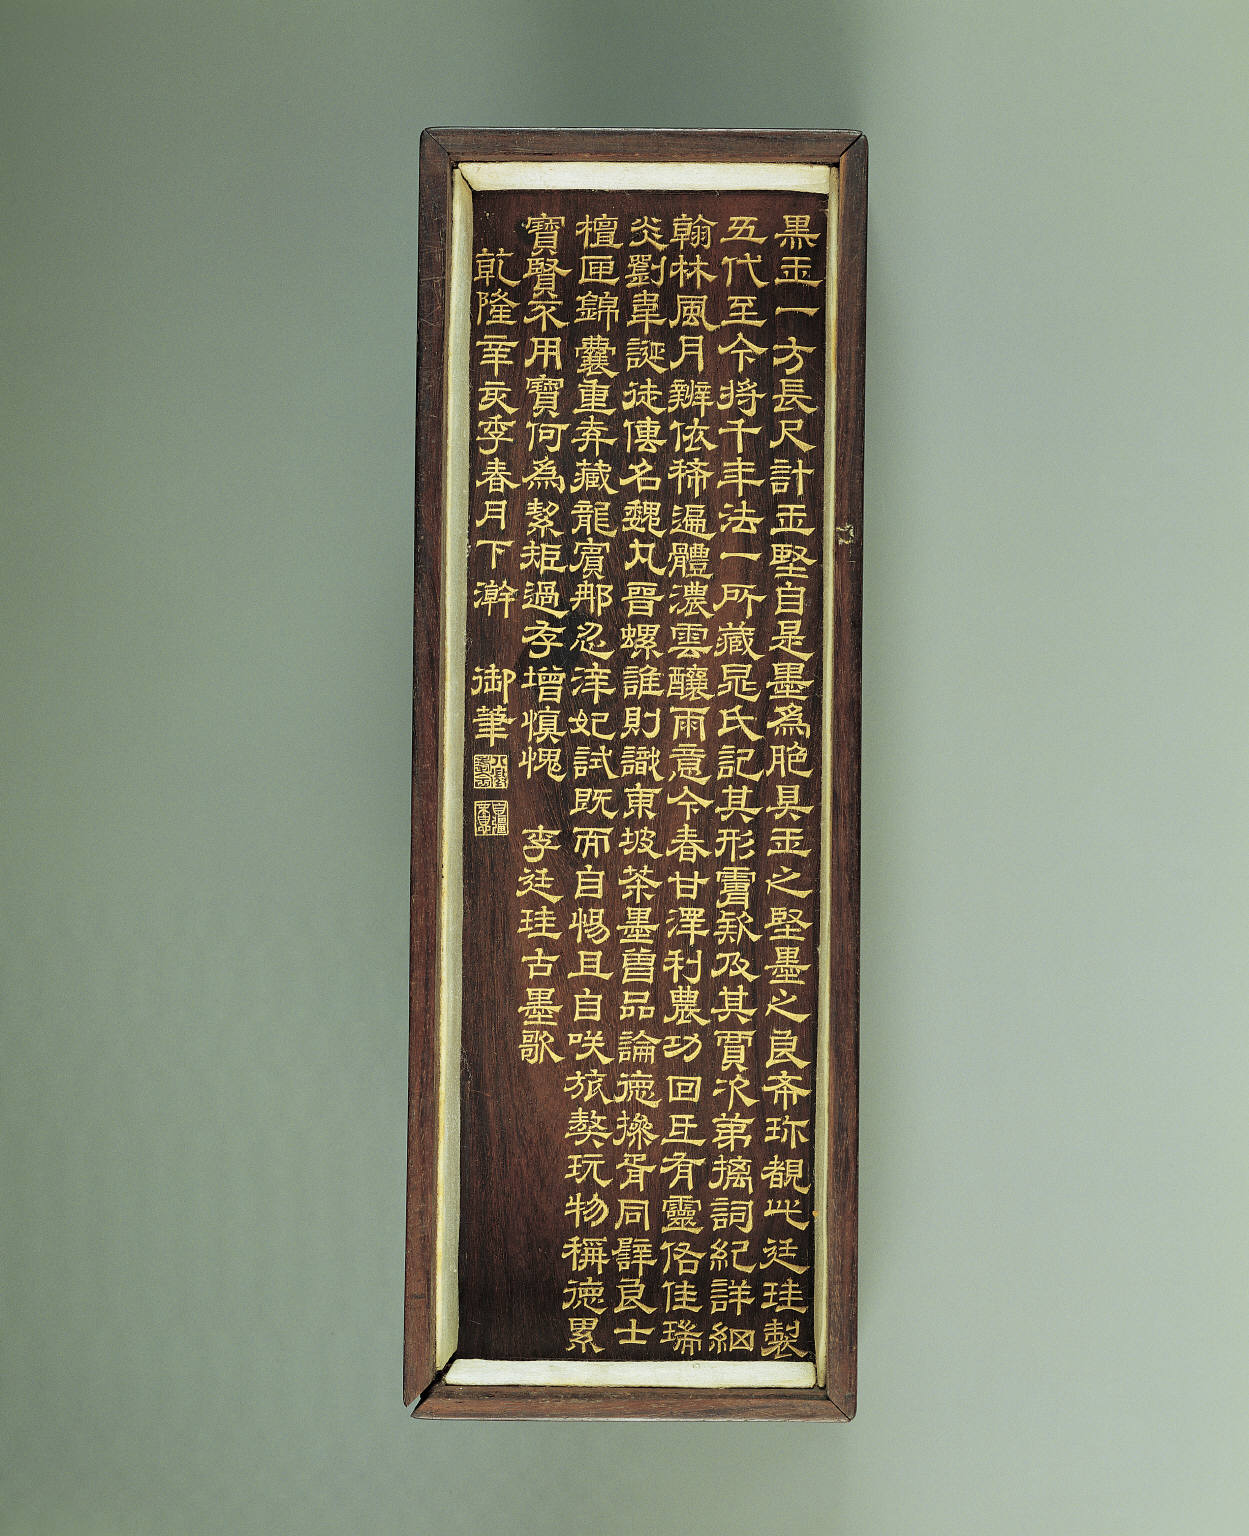 黑玉一方長尺計玉堅自是墨為脆具玉之堅墨之良希珎覩此廷珪製
五代至今將千年法一所藏晁氏記其形霄欵及其賈次第摛詞紀詳細
翰林風月辨依稀遍體濃雲釀雨意今春甘澤利農功回生有靈佑佳瑞
炎劉韋誕徒傳名魏丸晉螺誰則識東坡茶墨曽品論德操胥同譬良士
檀匣錦囊重弆藏龍賓那忍洋妃試既而自惕且自咲旅獒玩物稱德累
寶賢不用寶何為絜矩過存增慎愧 李廷珪古墨歌
乾隆辛亥季春月下澣 御筆
八徵耄念
自彊不息